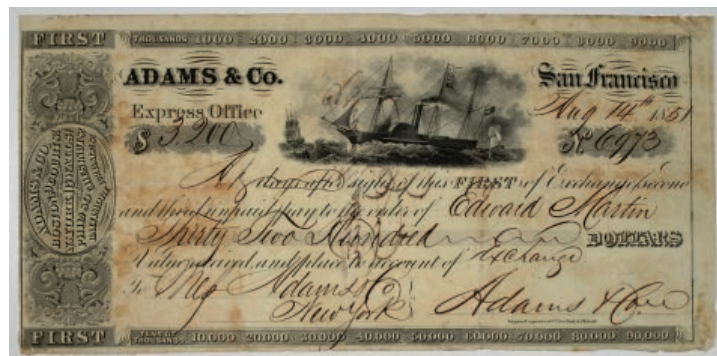 FIRST THOUSANDS 1000 2000 3000 4000 5000 6000 7000 8000 9000
ADAMS & Co. San Francisco
Express Office Aug 14th 1851
$ 3,200 No 6973
days after sight of this FIRST of Exchange, second
and third unpaid pay to the order of Edward Martin
Thirty Two Hundred DOLLARS
Value received, and place to account of Exchange
To Adams & Co
New York Adams & Co
ADAMS & CO.
FIRST TENS OF THOUSANDS 10.000 20.000 30.000 40.000 50.000 60.000 70.000 80.000 90.000